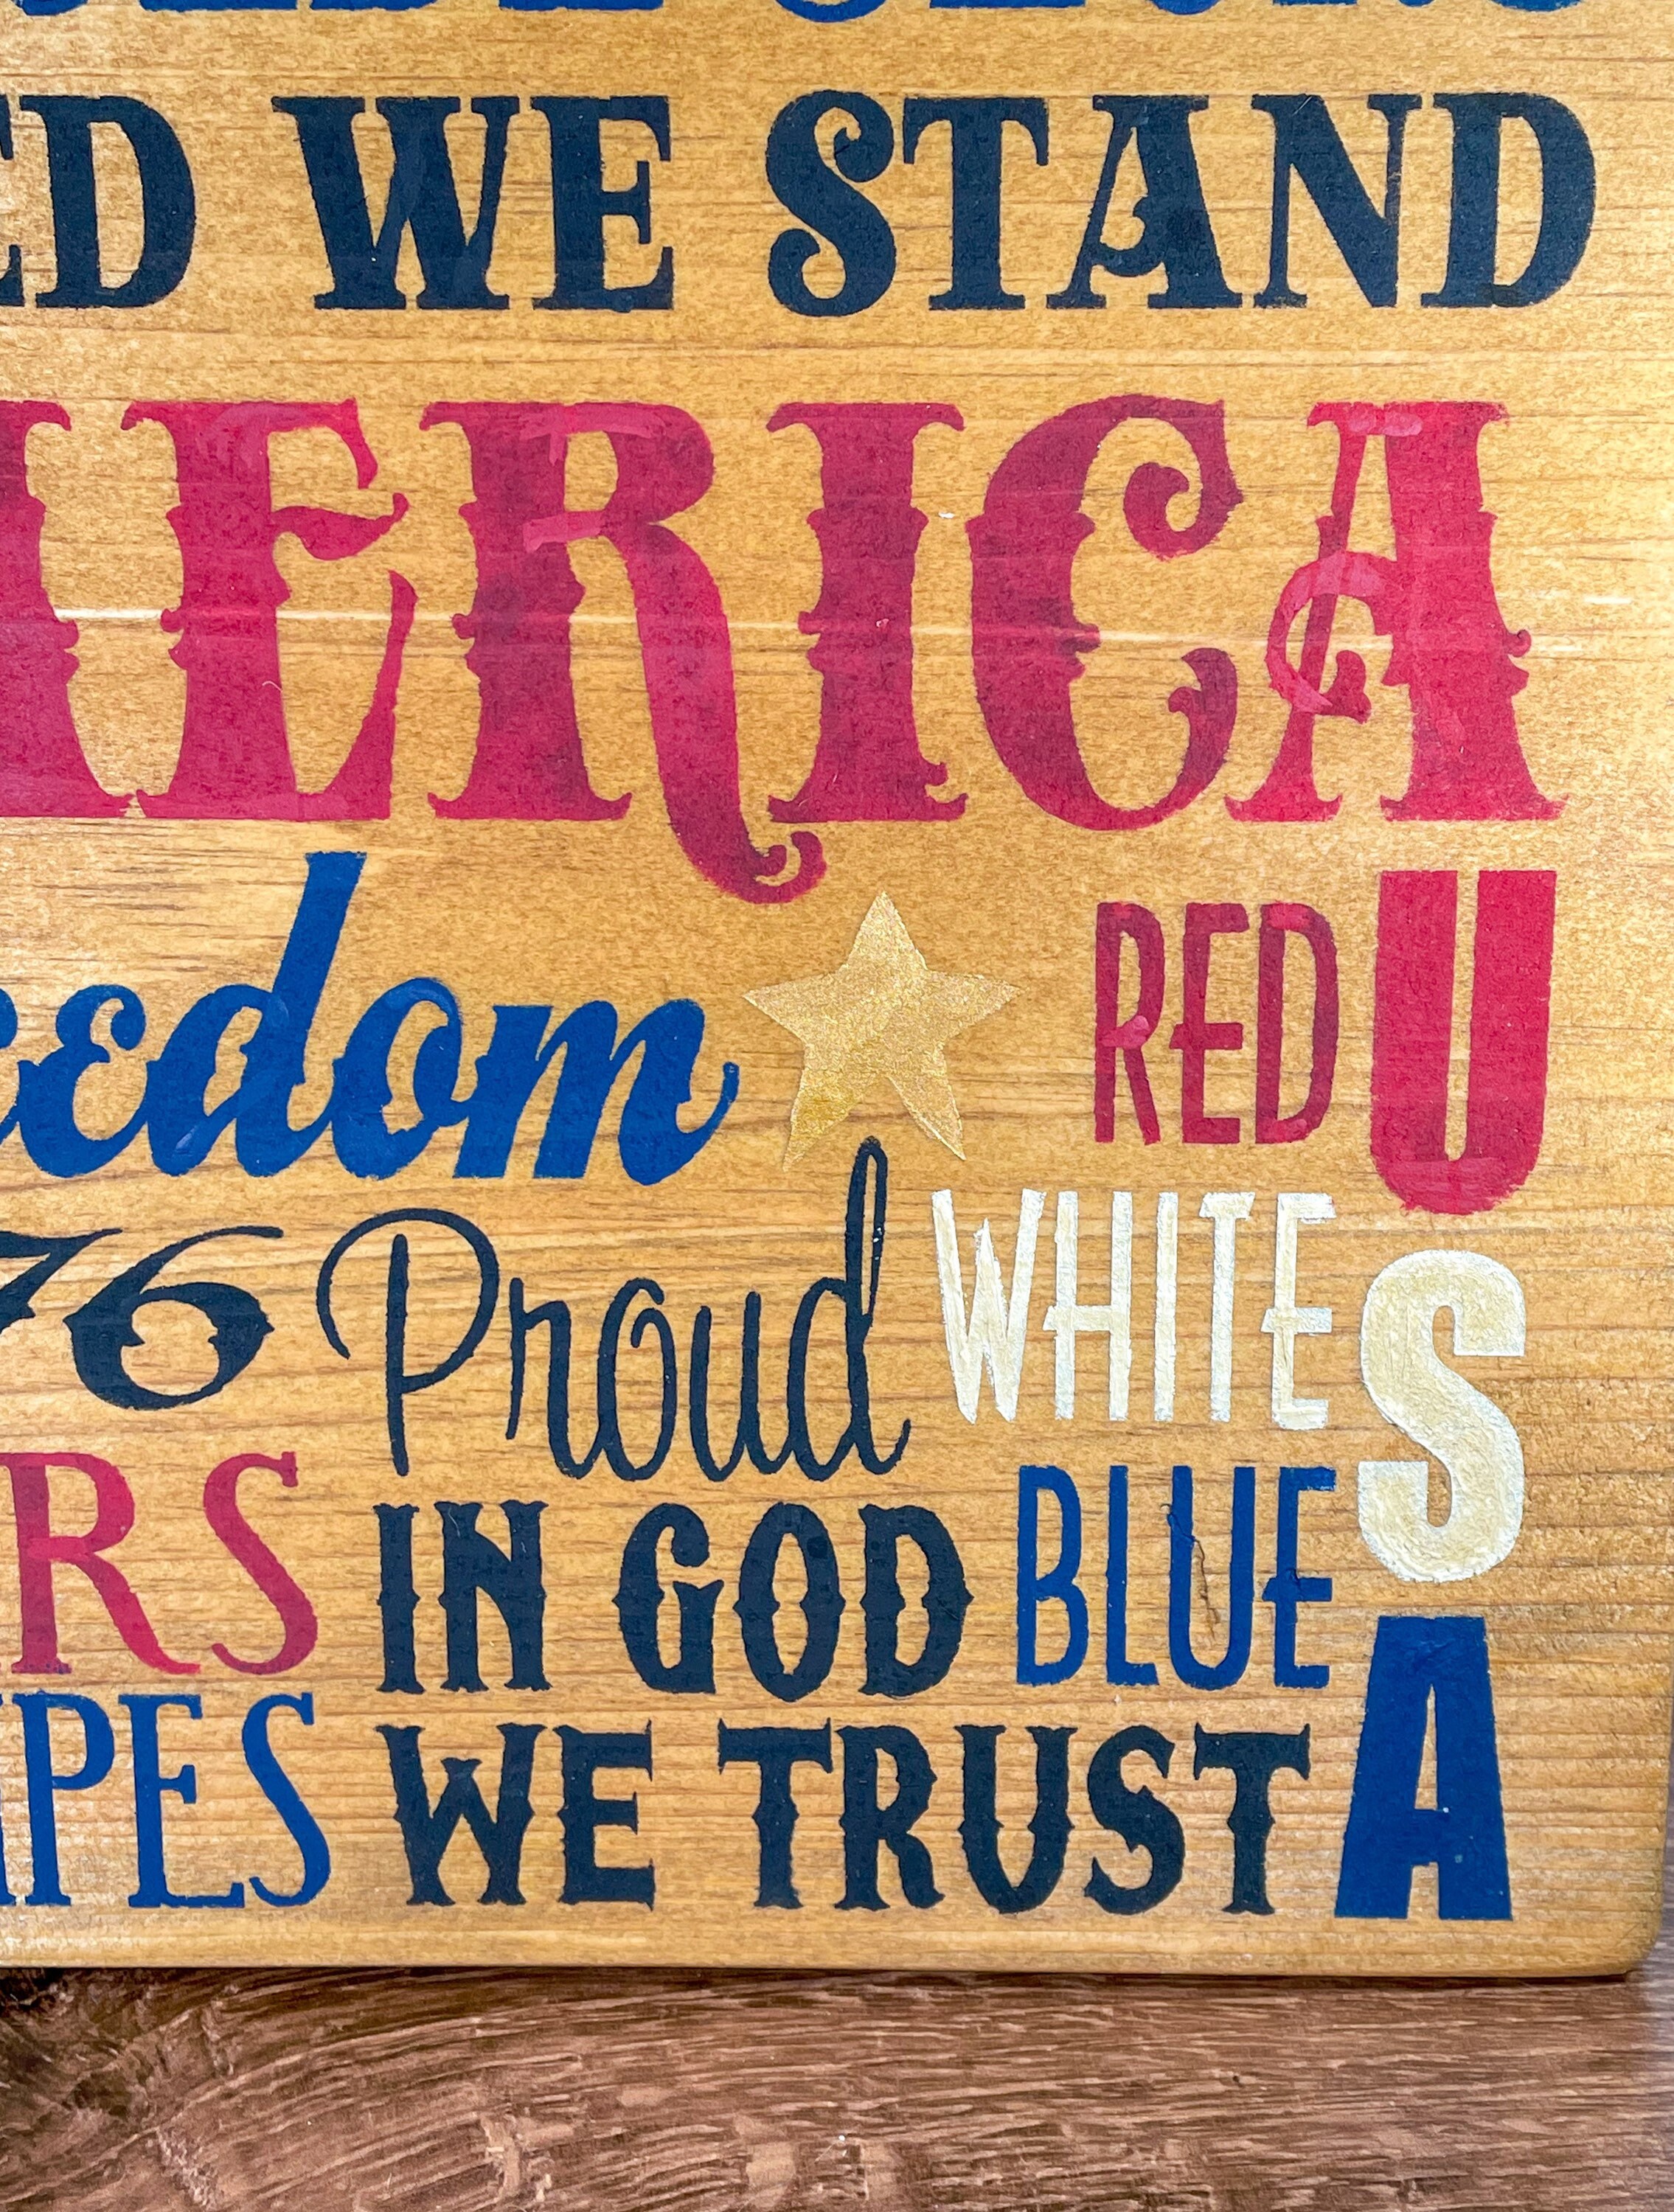 ED WE STAND
ERICA
eedom RED U
76 Proud WHITE S
RS IN GOD BLUE
IPES WE TRUST A